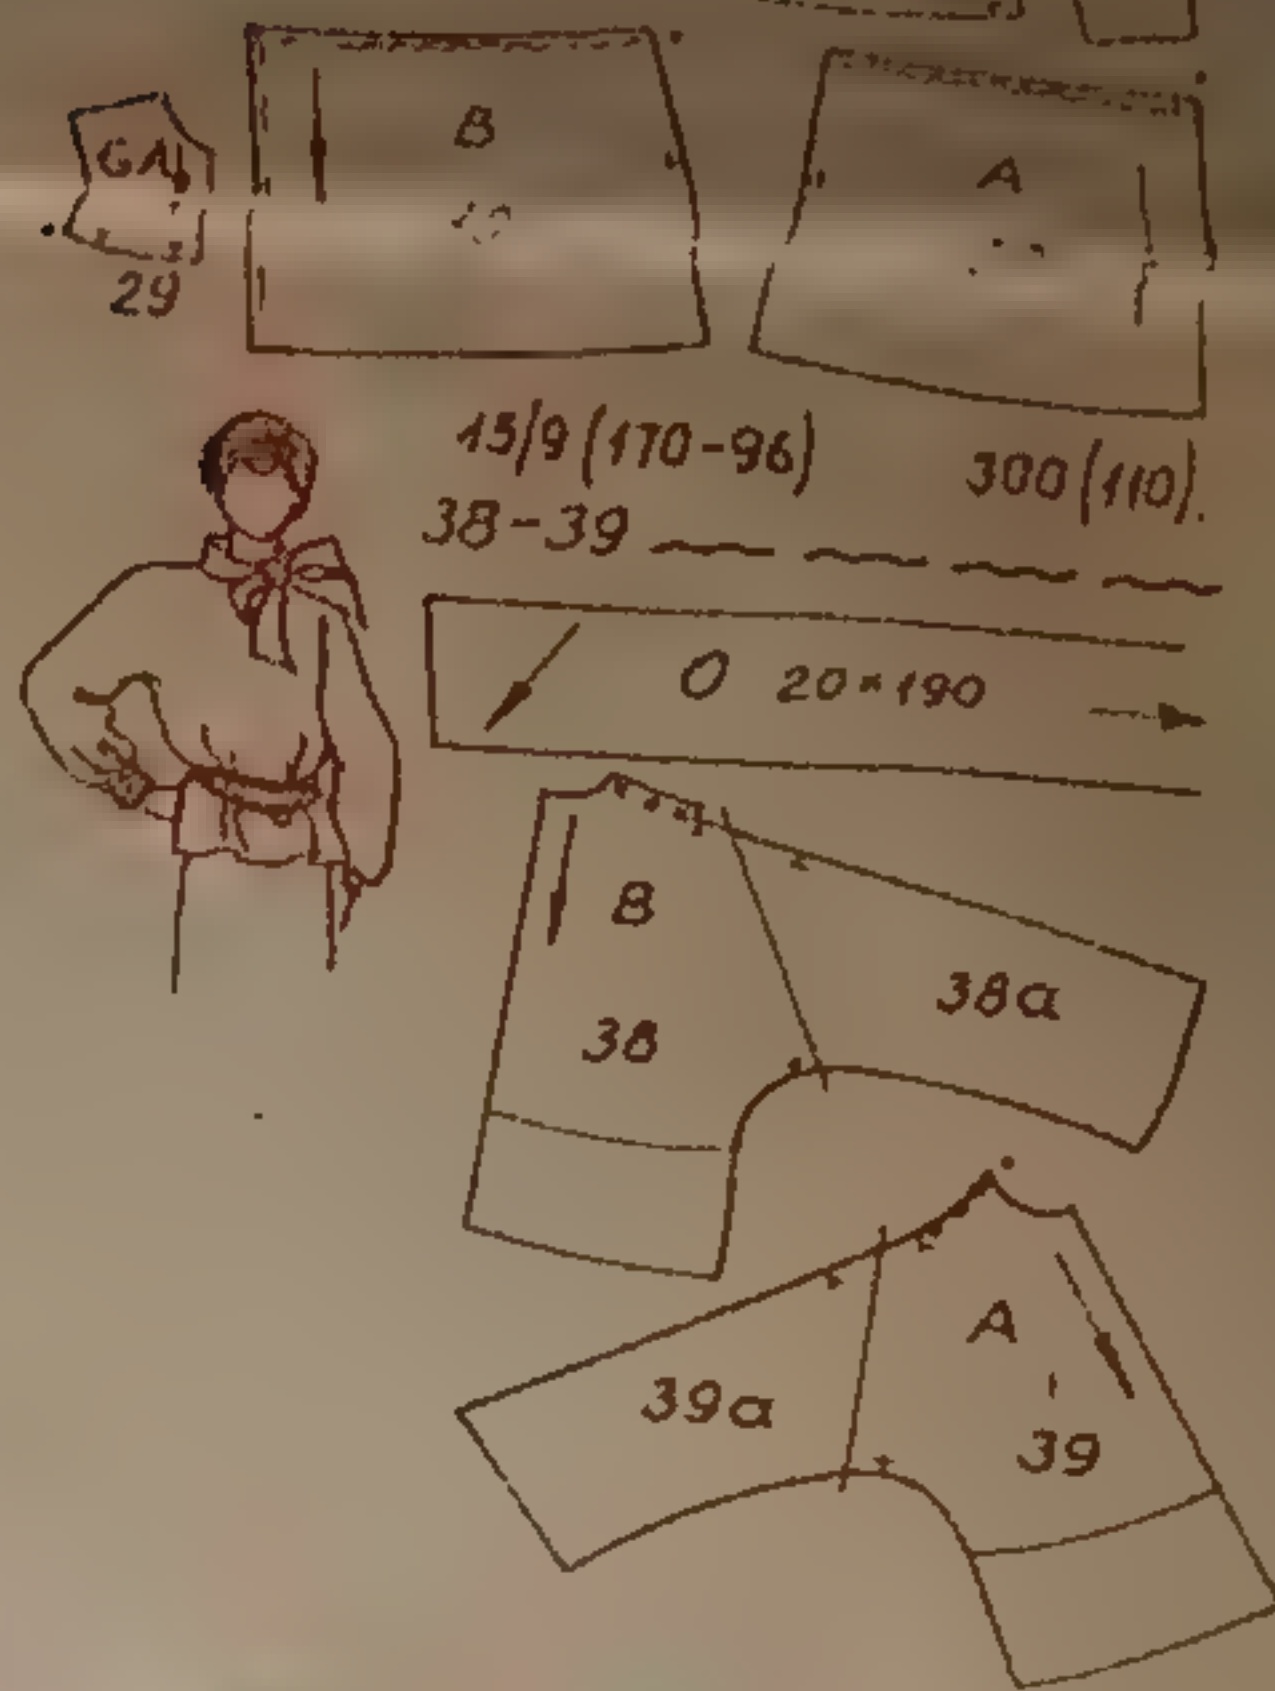 B
A
GA
29
15/9 (170-96)
300 (110).
38-39
O 20×190
B
38a
38
A
39a
39